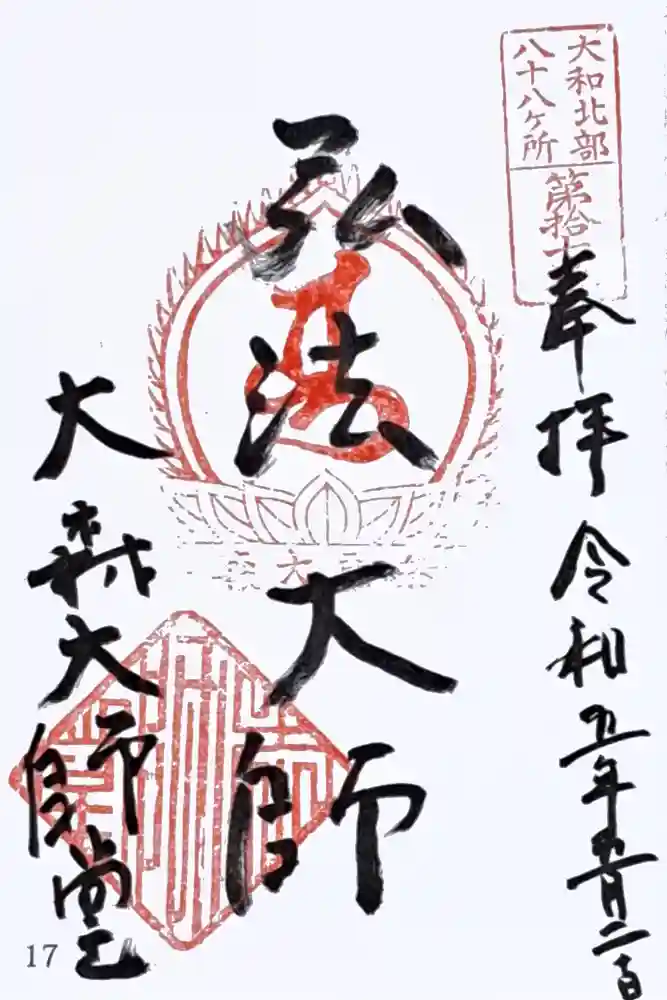 大和北部
八十八ヶ所
第拾
奉拝 令和五年五月二
弘法大師
大森大師堂
17